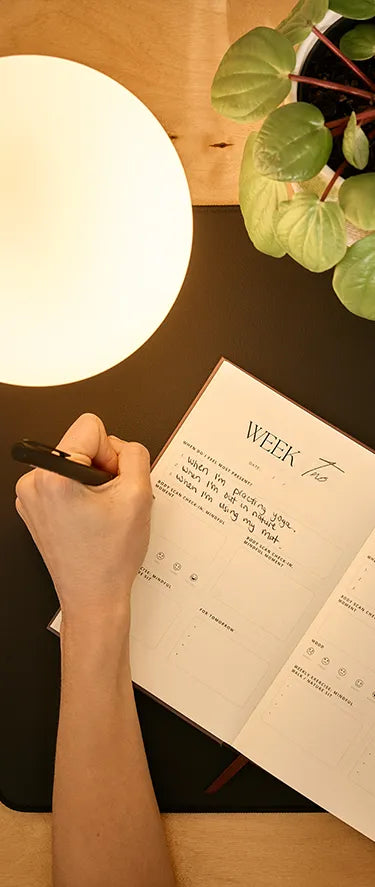 WEEK Two
DATE: / /
WHEN DO I FEEL MOST PRESENT?
1. When I'm practing yoga.
2. When I'm out in nature
3. When I'm using my mat.
BODY SCAN CHECK-IN: MINDFUL
MOMENT
BODY SCAN CHECK-IN:
MINDFUL MOMENT
MINDFUL
SIT
FOR TOMORROW
BODY SCAN CHECK
MOMENT
MOOD
WEEKLY EXERCISE: MINDFUL
WALK / NATURE SIT